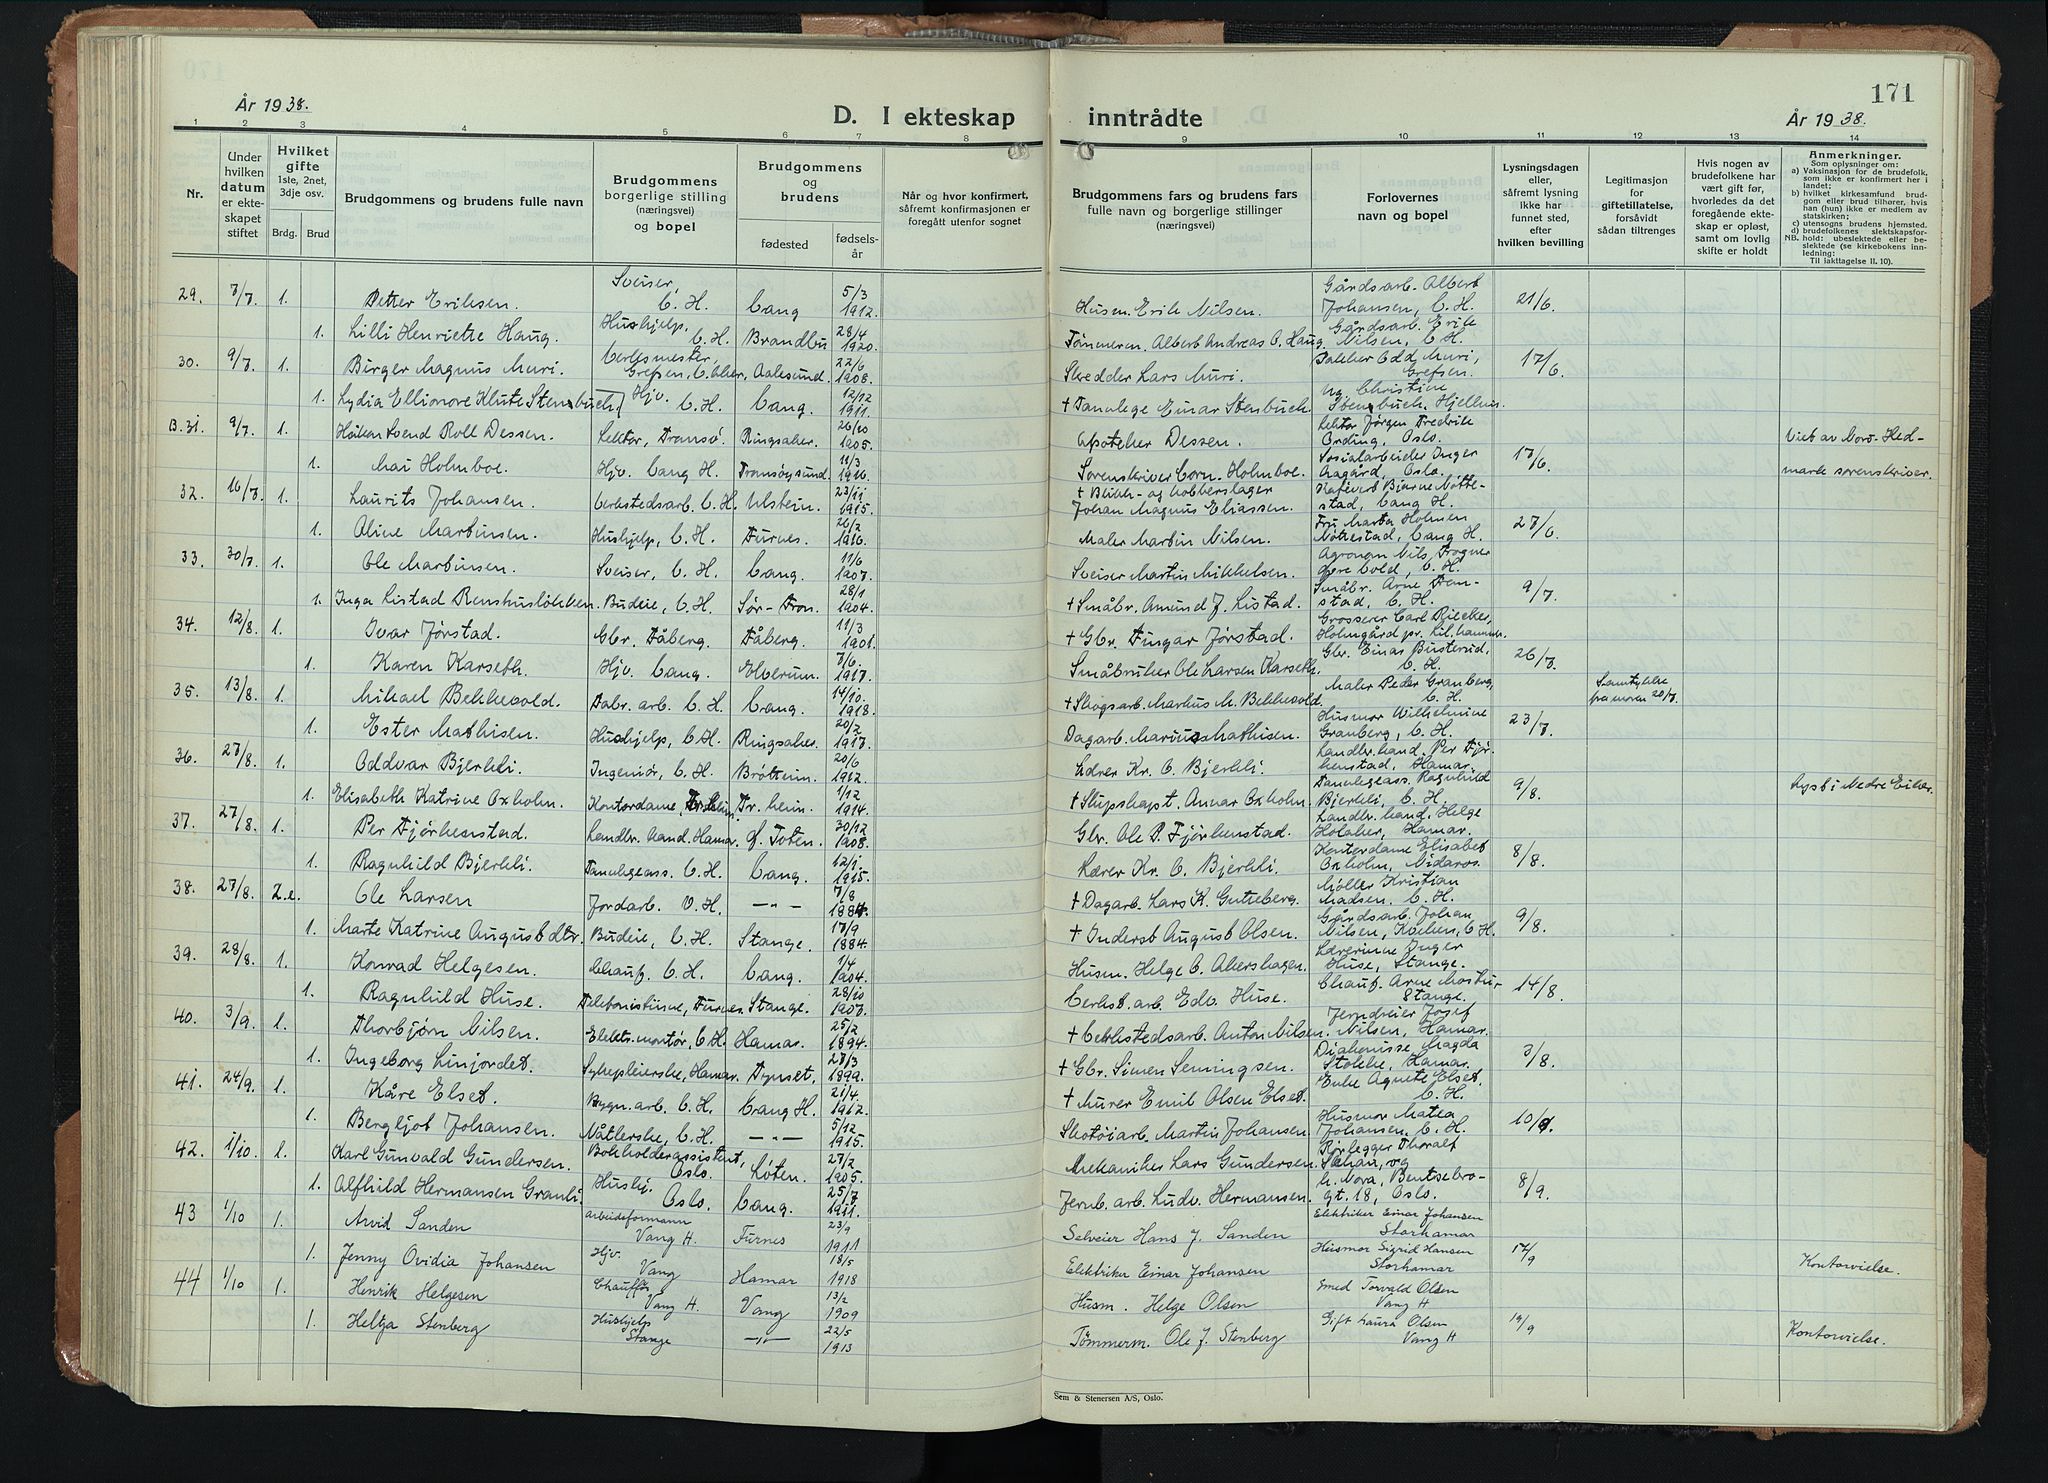 170
171
År 1938.
D. I ekteskap inntrådte
År 1938.
1 2 3 4 5 6 7 8 9 10 11 12 13 14
Nr.
Under hvilken datum er ekteskapet stiftet
Hvilket gifte 1ste, 2net, 3dje osv.
Brdg. Brud
Brudgommens og brudens fulle navn
Brudgommens borgerlige stilling (næringsvei) og bopel
Brudgommens og brudens
fødested
fødselsår
Når og hvor konfirmert, såfremt konfirmasjonen er foregått utenfor sognet
Brudgommens fars og brudens fars fulle navn og borgerlige stillinger (næringsvei)
Forlovernes navn og bopel
Lysningsdagen eller, såfremt lysning ikke har funnet sted, efter hvilken bevilling
Legitimasjon for giftetillatelse, forsåvidt sådan tiltrenges
Hvis nogen av brudefolkene har vært gift før, hvorledes da det foregående ekteskap er opløst, samt om lovlig skifte er holdt
Anmerkninger.
Som oplysninger om:
a) Vaksinasjon for de brudefolk, som ikke er konfirmert her i landet;
b) hvilket kirkesamfund brudgom eller brud tilhører, hvis han (hun) ikke er medlem av statskirken;
c) utensogns brudens hjemsted.
d) brudefolkenes slektskapsforhold: ubeslektede eller beslektede (se kirkebokens innledning:
NB.
Til iakttagelse II. 10).
29. 7/7. 1. Petter Eriksen. Sveiser, V. H. Vang 5/3 1912. Husm. Erik Nilsen. Gårdsarb. Albert Johansen, V. H. 21/6
1. Lilli Henriette Haug. Hushjelp, V. H. Brandbu 28/4 1920. Tømmerm. Albert Andreas O. Haug. Gårdsarb. Erik Nilsen, V. H.
30. 9/7. 1. Birger Magnus Muri. Verksmester, Grefsen, V. Aker, Aalesund. 22/6 1908. Skredder Lars Muri. Pakker Odd Muri, Grefsen. 17/6.
1. Lydia Ellionore Klute Stenbuch. Hjv. V. H. Vang. 12/12 1911. † Tannlege Einar Stenbuch. og Christine Stenbuch, Hjellum.
B.31. 9/7. 1. Håkon Svend Roll Dessen. Lektor, Tromsø. Ringsaker. 26/10 1905. Apoteker Dessen. Lektor Jørgen Fredrik Ording, Oslo. Viet av Nord-Hed-
1. Mai Holmboe. Hjv. Vang H. Tromsøysund. 11/3 1916. Sorenskriver Corn. Holmboe. Sosialarbeider Inger Aagård, Oslo. 17/6. mark sorenskriver.
32. 16/7. 1. Laurits Johansen. Verkstedsarb. V. H. Ulstein. 23/11 1915. † Blikk- og kobberslager Johan Magnus Eliassen. Kafévert Bjarne Nøttestad, Vang H.
1. Aline Martinsen. Hushjelp, V. H. Furnes. 26/2 1916. Maler Martin Nilsen. Fru Marta Holmen Nøttestad, Vang H. 27/6
33. 30/7. 1. Ole Martinsen. Sveiser, V. H. Vang. 11/6 1907. Sveiser Martin Mikkelsen. Agronom Nils Frogner V. H.
1. Inga Listad Renshusløkken. Budeie, V. H. Sør-Fron. 28/1 1904. † Småbr. Amund J. Listad. Småbr. Arne Fremstad, V. H. 9/7.
34. 12/8. 1. Ivar Jørstad. Gbr. Fåberg. Fåberg. 11/3 1901. † Gbr. Fingar Jørstad. Grosserer Carl Holmgård pr. Lillehammer.
1. Karen Karseth. Hjv. Vang. Elverum. 7/6. 1917. Småbruker Ole Larsen Karseth. Gbr. Einar Busterud, V. H. 26/7.
35. 13/8. 1. Mikael Bekkevold. Fabr. arb. V. H. Vang. 14/10 1918. † Skogsarb. Markus M. Bekkevold. Maler Peder Granberg, V. H. Samtykke fra moren 20/7.
1. Ester Mathisen. Hushjelp, V. H. Ringsaker. 20/2 1917. Dagarb. Marius Mathisen. Husmor Wilhelmine Granberg, V. H. 23/7.
36. 27/8. 1. Oddvar Bjerkli. Ingeniør, V. H. Brøttum. 20/6 1912. Lærer Kr. O. Bjerkli. Landbr. kand. Per Fjørkenstad, Hamar.
1. Elisabeth Katrine Oxholm. Kontordame, Tr.heim. Tr. heim. 1/12 1914. † Skipskapt. Annar Oxholm. Tannlegeass. Ragnhild Bjerkli, V. H. 9/8. Lyst i Nedre Eiker.
37. 27/8. 1. Per Fjørkenstad. Landbr. kand. Hamar. Ø. Toten. 30/12 1908. Gbr. Ole P. Fjørkenstad. Landbr. kand. Helge Holaker, Hamar.
1. Ragnhild Bjerkli. Tannlegeass. V. H. Vang. 12/1. 1915. Lærer Kr. O. Bjerkli. Kontordame Elisabet Oxholm, Nidaros. 8/8.
38. 27/8. 2.e. Ole Larsen Jordarb. V. H. —"— 7/8 1884. † Dagarb. Lars K. Gutuberg. Møller Kristian Madsen. V. H.
1. Marte Katrine Augustdtr. Budeie, V. H. Stange. 17/9 1884. † Inderst August Olsen. Gårdsarb. Johan Nilsen, V. H. 9/8.
39. 28/8. 1. Konrad Helgesen. Chauf. V. H. Vang. 1/4 1904. Husm. Helge O. Akershagen. Lærerinne Inger Huse, Stange.
1. Ragnhild Huse. Telefonistinne, Furnes. Stange. 28/10 1907. Verkst. arb. Edv. Huse. Chauf. Arne Stange. 14/8.
40. 3/9. 1. Thorbjørn Nilsen. Elektr. montør, V. H. Hamar. 25/2 1894. † Verkstedsarb. Anton Nilsen. Jerndreier Josef Nilsen, Hamar.
1. Ingeborg Linjordet. Sykepleierske, Hamar. Tynset. 27/3 1899. † Gbr. Simen Semingsen. Diakonisse Magda Stokke, Hamar. 3/8.
41. 24/9. 1. Kåre Elset. Bygn. arb. V. H. Vang H. 21/4. 1912. † Murer Emil Olsen Elset. Enke Agnete Elset. V. H.
1. Bergljot Johansen. Nåtlerske, V. H. —"— 5/12 1915. Skotøiarb. Martin Johansen. Husmor Matea Johansen. V. H. 10/9.
42. 1/10. 1. Karl Gunvald Gundersen. Bokholderassistent, Oslo. Løten. 27/2 1905. Mekaniker Lars Gundersen. Rørlegger Thoralf og
1. Alfhild Hermansen Granli. Hushj. Oslo. Vang. 25/7 1911. Jernb. arb. Ludv. Hermansen. h. Nora, Bentsebrogt. 18, Oslo. 8/9.
43 1/10 1. Arvid Sanden arbeidsformann Vang H. Furnes 23/9 1911 Selveier Hans J. Sanden Elektriker Einar Johansen Storhamar
1. Jenny Ovidia Johansen Hjv. Vang Hamar 18/5 1918 Elektriker Einar Johansen Husmor Sigrid Hansen Storhamar 17/9 Kontorvielse.
44 1/10 1. Henrik Helgesen Chauffør Vang H. Vang 13/2 1909 Husm. Helge Olsen Smed Torvald Olsen Vang H
1. Helga Stenberg Hushjelp Stange —"— 22/5 1913 Tømmerm. Ole J. Stenberg Gift Laura Olsen Vang H 19/9 Kontorvielse.
Sem & Stenersen A/S, Oslo.